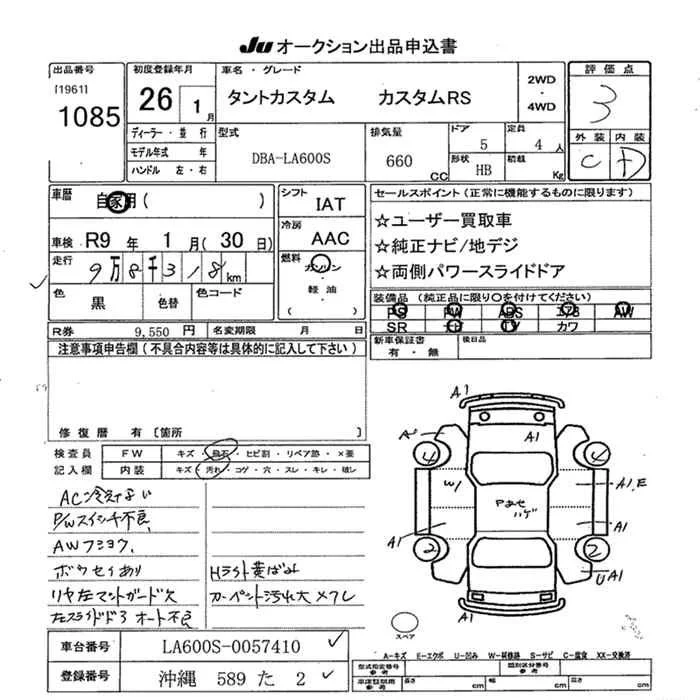 Ju オークション出品申込書
出品番号
[1961]
1085
初度登録年月
26 1月
ディーラー・並行
モデル年式 年
ハンドル 左・右
車名・グレード
タントカスタム カスタムRS
2WD
・
4WD
評価点
3
外装 内装
C D
型式
DBA-LA600S
排気量
660 CC
ドア
5
定員
4人
形状
HB
積載
Kg
車歴
自家用( )
車検 R9年 1月(30日)
走行
9万8千318km
色
黒
色替
色コード
R券 9,550円 名変期限 月 日
シフト
IAT
冷房
AAC
燃料
ガソリン
・
軽油
・
( )
セールスポイント(正常に機能するものに限ります)
☆ユーザー買取車
☆純正ナビ/地デジ
☆両側パワースライドドア
装備品(純正品に限り○を付けてください)
PS PW ABS エアB AW
SR ナビ TV カワ
新車保証書
有・無
後日品
注意事項申告欄(不具合内容等は具体的に記入して下さい)
修復歴 有 [箇所 ]
検査員
記入欄
FW キズ・飛石・ヒビ割・リペア跡・×要
内装 キズ・汚れ・コゲ・穴・スレ・キレ・破レ
AC冷えない
P/Wスイッチ不良
AWフショク
ボウセイあり
リヤ左マットガード欠
左スライドドア オート不良
Hライト黄ばみ
カーペット汚れ大
A1
A1
4
4
W1
Pあせ
ハゲ
A1,E
A1
A1
2
2
UA1
A1
スペア
A−キズ E−エクボ U−凹み W−補修跡 S−サビ C−腐食 XX−交換済
車台番号 LA600S-0057410
登録番号 沖縄 589 た 2
型式指定番号
参考
類別区分番号
参考
長さ cm 幅 cm 高さ cm